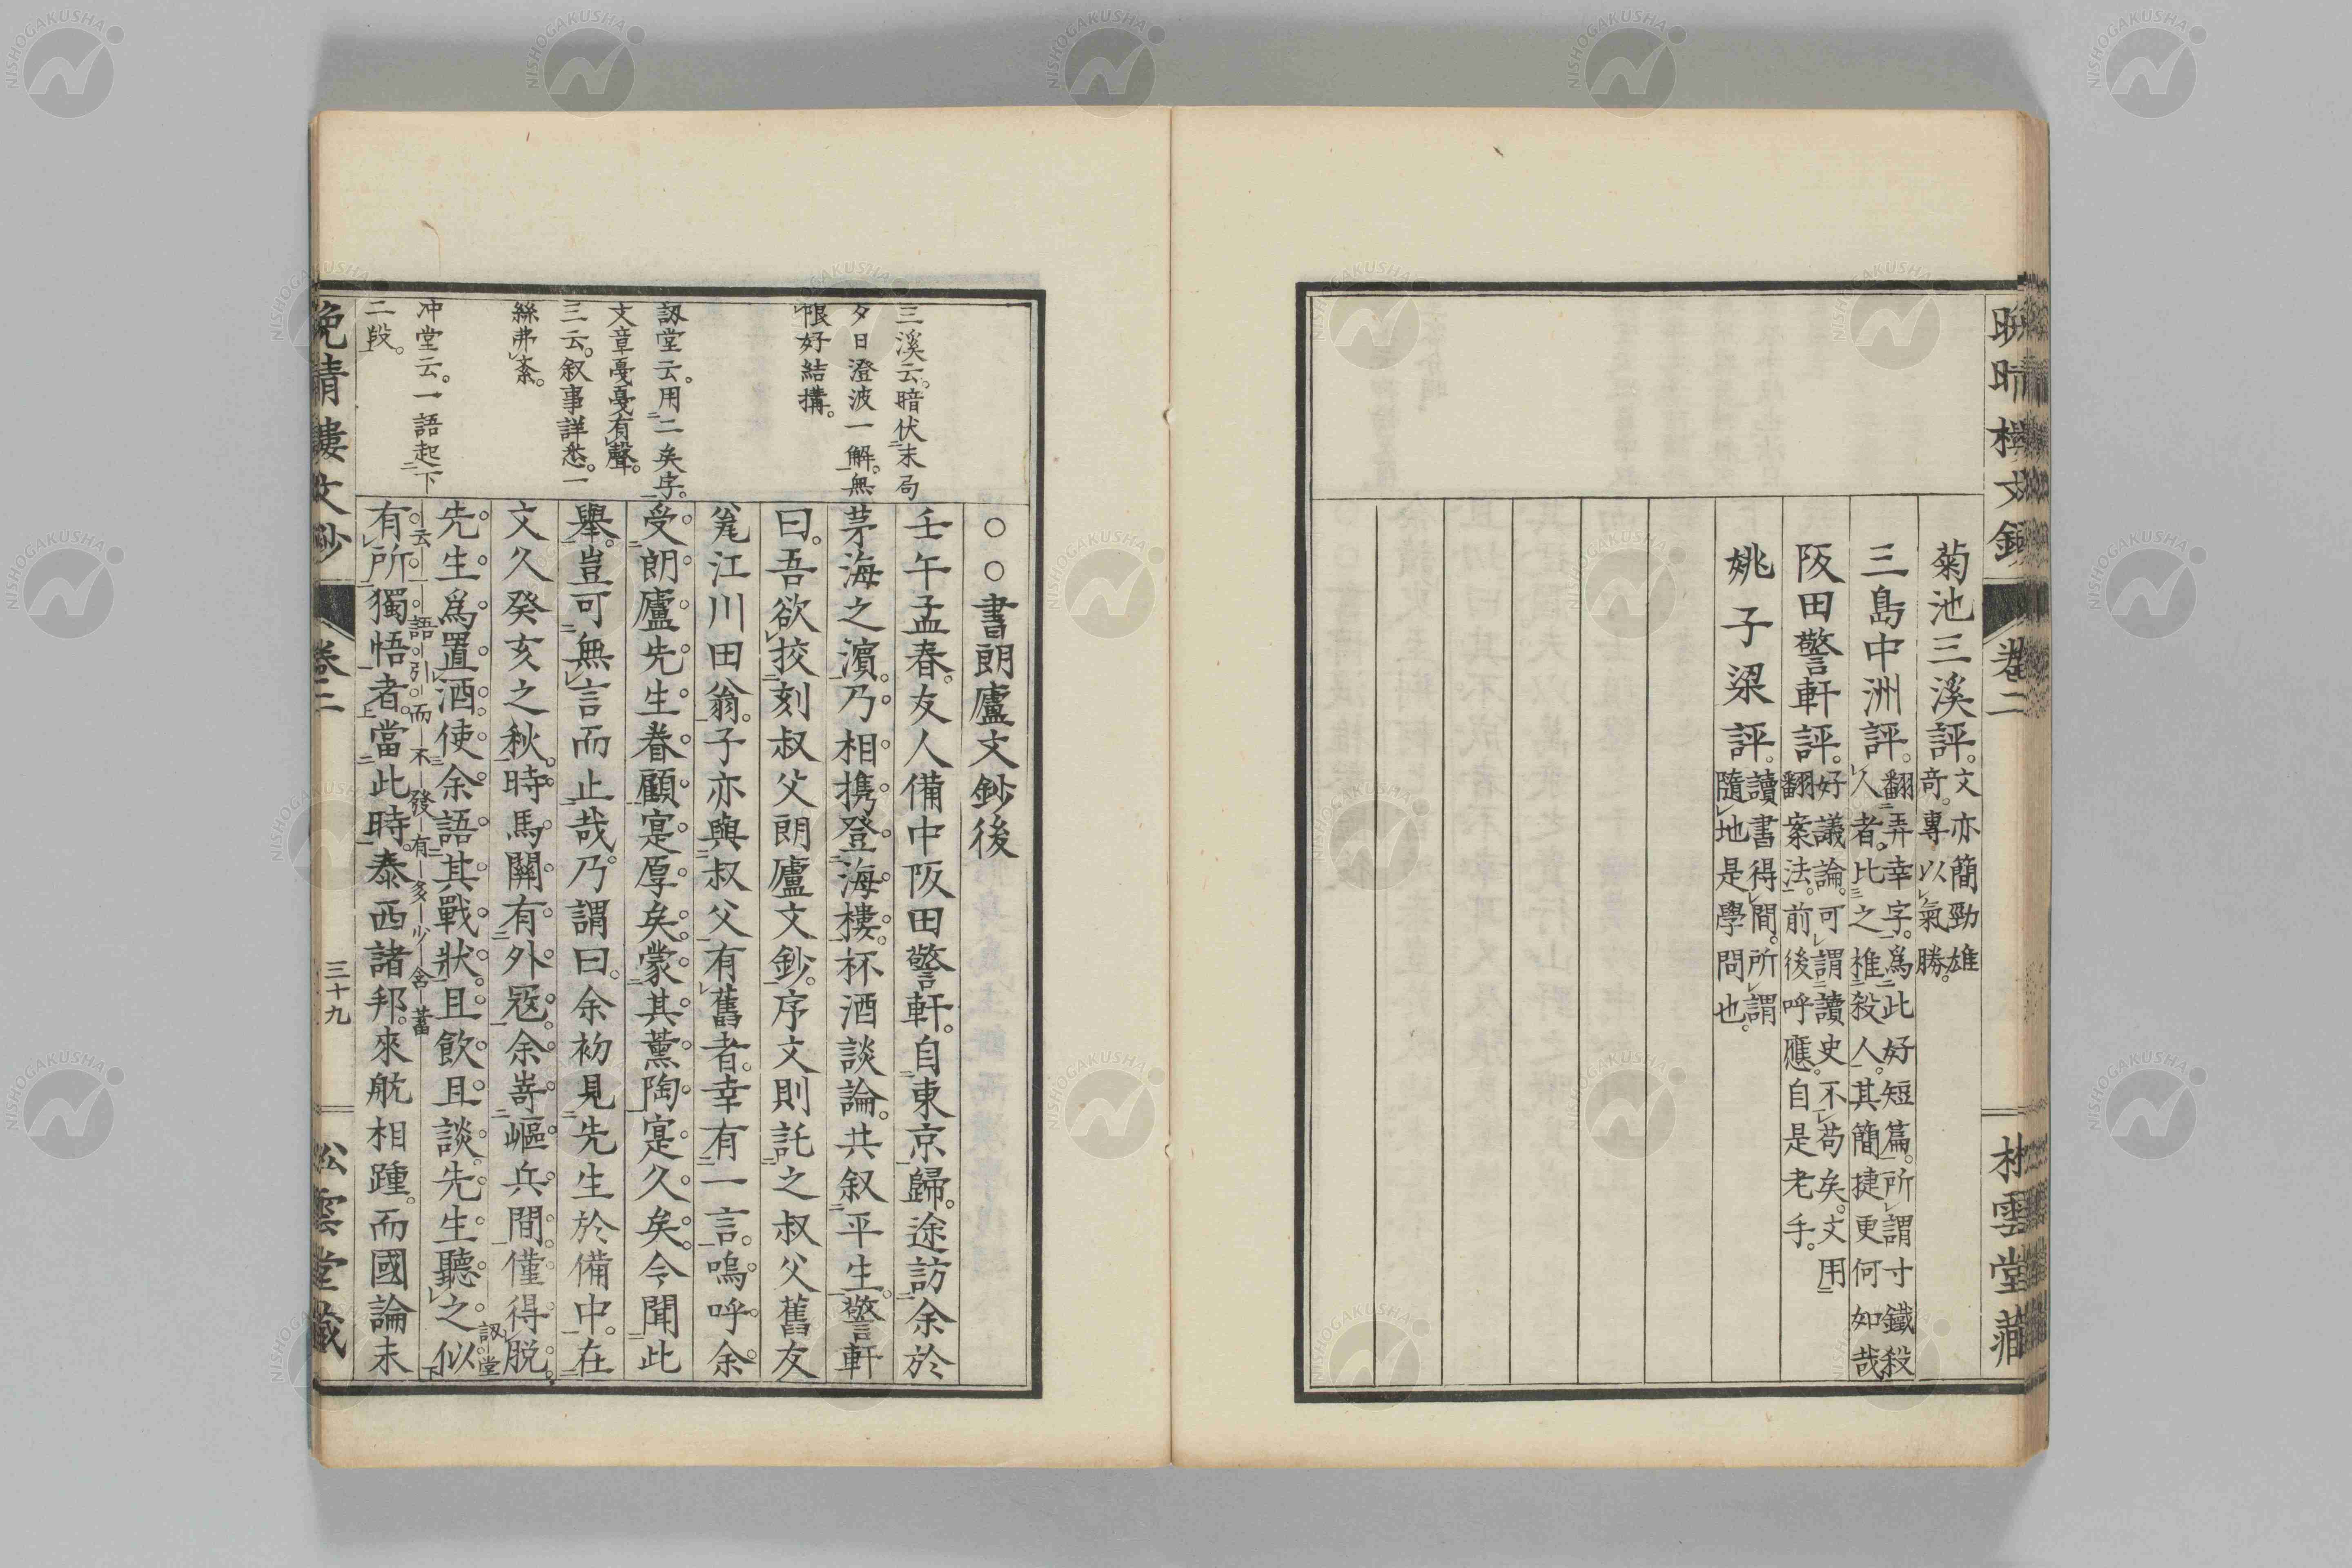 晩晴樓文鈔
卷二
松雲堂藏
菊池三溪評。文亦簡勁雄奇。專以氣勝。
三島中洲評。翻弄幸字。爲此好短篇。所謂寸鐵殺人者。比之椎殺人。其簡捷更何如哉
阪田警軒評。好議論。可謂讀史不苟矣。文用翻案法。前後呼應。自是老手。
姚子梁評。讀書得間。所謂隨地是學問也。
三溪云。暗伏末局
夕日澄波一解。無
恨好結構。
訒堂云。用二矣字。
文章戞戞有聲。
三云。叙事詳悉。一
絲弗紊。
冲堂云。一語起下
二段。
○○書朗廬文鈔後
壬午孟春。友人備中阪田警軒。自東京歸。途訪余於
茅海之濵。乃相携登海樓。杯酒談論。共叙平生。警軒
曰。吾欲挍刻叔父朗廬文鈔。序文則託之叔父舊友
㲋江川田翁。子亦與叔父有舊者。幸有一言。嗚呼余
受朗廬先生眷顧寔厚矣。蒙其薫陶寔久矣。今聞此
舉。豈可無言而止哉。乃謂曰。余初見先生於備中。在
文久癸亥之秋。時馬關有外冦。余嵜嶇兵間。僅得脱。
訒堂
先生爲置酒。使余語其戰狀。且飲且談。先生聽之。似
云語引而不發有多少舍蓄
有所獨悟者。當此時。泰西諸邦。來航相踵。而國論未
晩晴樓文鈔
卷二
三十九
松雲堂藏